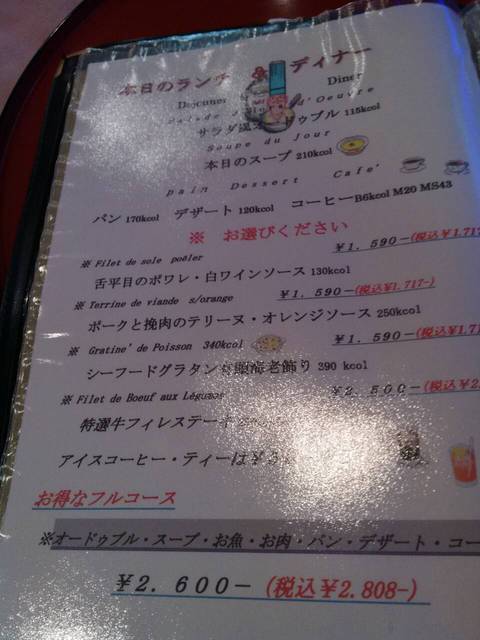 本日のランチ & ディナー
Dejcuner Diner
Salade d'Oeuvre
サラダ オードゥブル 115kcol
Soupe du Jour
本日のスープ 210kcol
pain Dessert Cafe'
パン 170kcol デザート 120kcol コーヒーB6kcol M20 MS43
※ お選びください
※ Filet de sole poëler ¥1.590-(税込¥1.717
舌平目のポワレ・白ワインソース 130kcol
※ Terrine de viande s/orange ¥1.590-(税込¥1.717-)
ポークと挽肉のテリーヌ・オレンジソース 250kcol
※ Gratine' de Poisson 340kcol ¥1.590-(税込¥1.7
シーフードグラタン 頭海老飾り 390 kcol
※ Filet de Boeuf aux Légumes ¥2.500-(税込¥2
特選牛フィレステーキ
アイスコーヒー・ティーは¥
お得なフルコース
※オードゥブル・スープ・お魚・お肉・パン・デザート・コー
¥2.600-(税込¥2.808-)